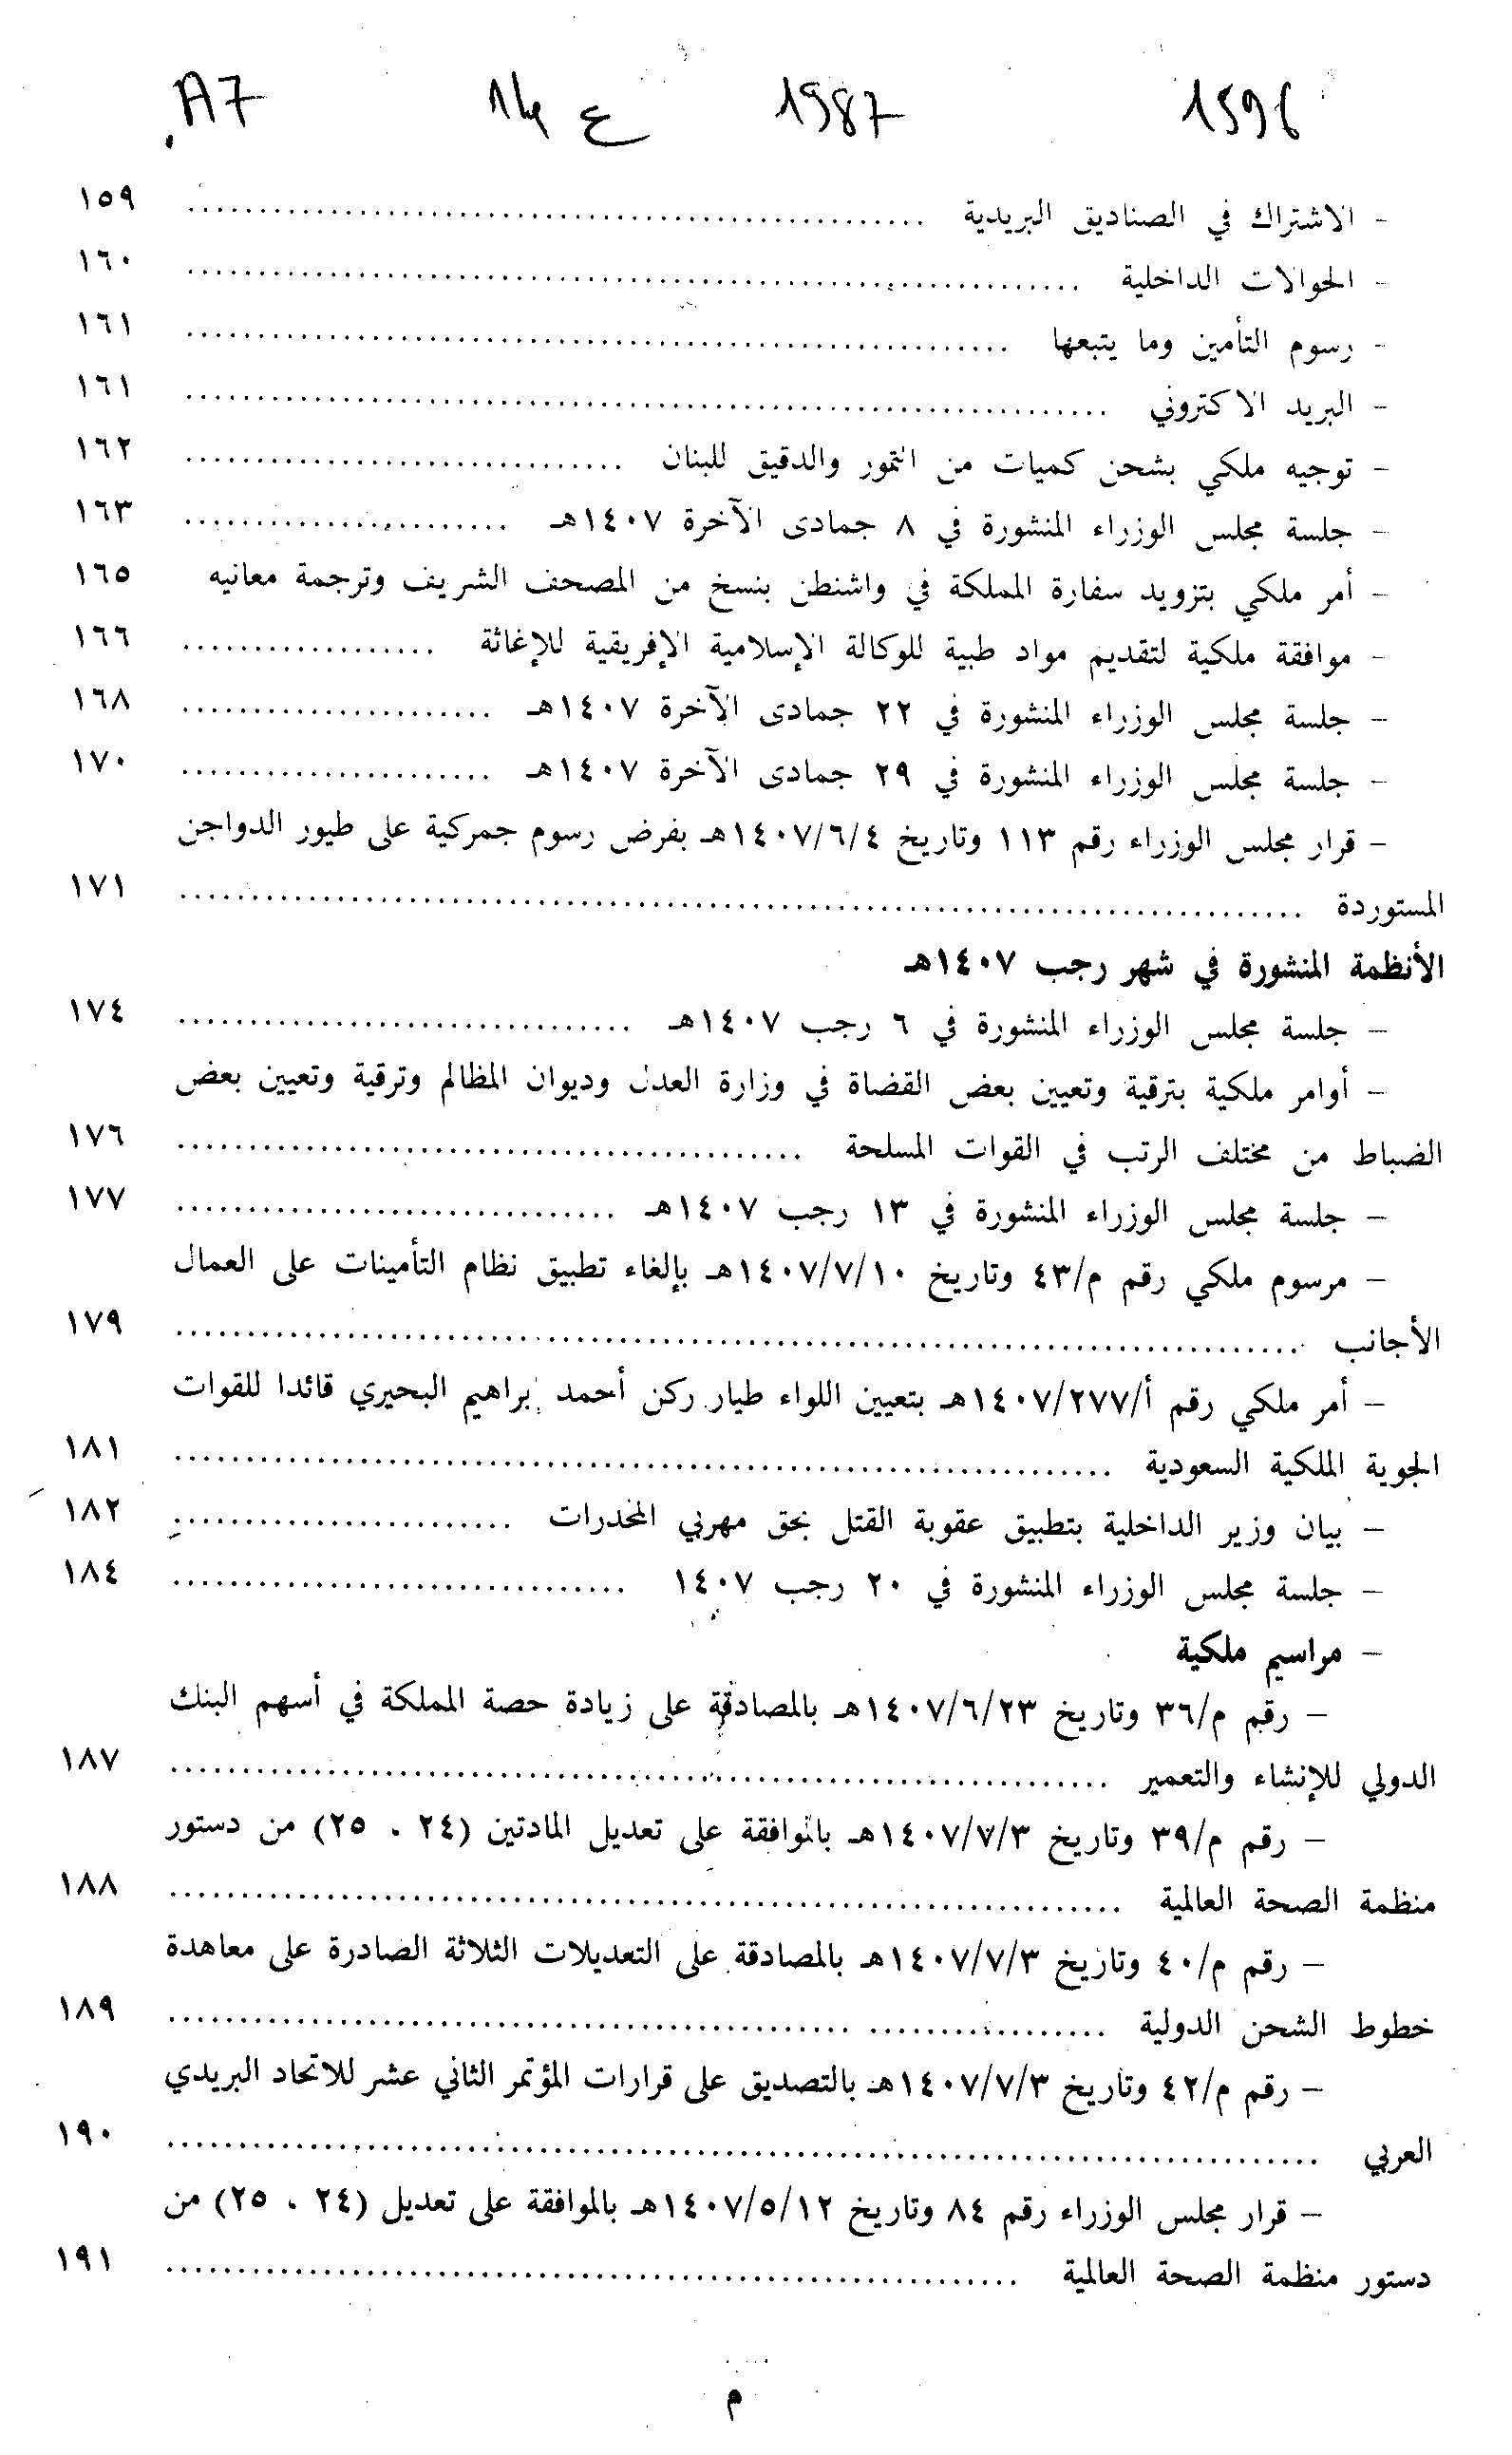 1596 1987 ع 14 A7.
- الاشتراك في الصناديق البريدية ........ ١٥٩
- الحوالات الداخلية ........ ١٦٠
- رسوم التأمين وما يتبعها ........ ١٦١
- البريد الاكتروني ........ ١٦١
- توجيه ملكي بشحن كميات من التمور والدقيق للبنان ........ ١٦٢
- جلسة مجلس الوزراء المنشورة في ٨ جمادى الآخرة ١٤٠٧هـ ........ ١٦٣
- أمر ملكي بتزويد سفارة المملكة في واشنطن بنسخ من المصحف الشريف وترجمة معانيه ١٦٥
- موافقة ملكية لتقديم مواد طبية للوكالة الإسلامية الإفريقية للإغاثة ........ ١٦٦
- جلسة مجلس الوزراء المنشورة في ٢٢ جمادى الآخرة ١٤٠٧هـ ........ ١٦٨
- جلسة مجلس الوزراء المنشورة في ٢٩ جمادى الآخرة ١٤٠٧هـ ........ ١٧٠
- قرار مجلس الوزراء رقم ١١٣ وتاريخ ١٤٠٧/٦/٤هـ بفرض رسوم جمركية على طيور الدواجن
المستوردة ........ ١٧١
الأنظمة المنشورة في شهر رجب ١٤٠٧هـ
- جلسة مجلس الوزراء المنشورة في ٦ رجب ١٤٠٧هـ ........ ١٧٤
- أوامر ملكية بترقية وتعيين بعض القضاة في وزارة العدل وديوان المظالم وترقية وتعيين بعض
الضباط من مختلف الرتب في القوات المسلحة ........ ١٧٦
- جلسة مجلس الوزراء المنشورة في ١٣ رجب ١٤٠٧هـ ........ ١٧٧
- مرسوم ملكي رقم م/٤٣ وتاريخ ١٤٠٧/٧/١٠هـ بإلغاء تطبيق نظام التأمينات على العمال
الأجانب ........ ١٧٩
- أمر ملكي رقم أ/١٤٠٧/٢٧٧هـ بتعيين اللواء طيار ركن أحمد إبراهيم البحيري قائدا للقوات
الجوية الملكية السعودية ........ ١٨١
- بيان وزير الداخلية بتطبيق عقوبة القتل بحق مهربي المخدرات ........ ١٨٢
- جلسة مجلس الوزراء المنشورة في ٢٠ رجب ١٤٠٧ ........ ١٨٤
- مراسيم ملكية
- رقم م/٣٦ وتاريخ ١٤٠٧/٦/٢٣هـ بالمصادقة على زيادة حصة المملكة في أسهم البنك
الدولي للإنشاء والتعمير ........ ١٨٧
- رقم م/٣٩ وتاريخ ١٤٠٧/٧/٣هـ بالموافقة على تعديل المادتين (٢٤ ، ٢٥) من دستور
منظمة الصحة العالمية ........ ١٨٨
- رقم م/٤٠ وتاريخ ١٤٠٧/٧/٣هـ بالمصادقة على التعديلات الثلاثة الصادرة على معاهدة
خطوط الشحن الدولية ........ ١٨٩
- رقم م/٤٢ وتاريخ ١٤٠٧/٧/٣هـ بالتصديق على قرارات المؤتمر الثاني عشر للاتحاد البريدي
العربي ........ ١٩٠
- قرار مجلس الوزراء رقم ٨٤ وتاريخ ١٤٠٧/٥/١٢هـ بالموافقة على تعديل (٢٤ ، ٢٥) من
دستور منظمة الصحة العالمية ........ ١٩١
م